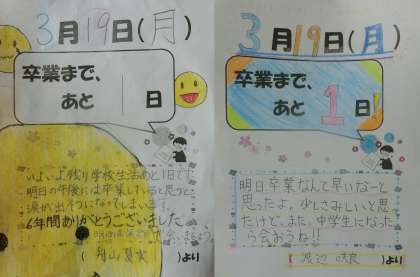 3月19日(月)
卒業まで、
あと1日
いよいよ残り学校生活あと1日です。
明日の午後には卒業していると思うと
涙が出そうになってしまいます。
6年間ありがとうございました
より
3月19日(月)
卒業まで、
あと1日
明日卒業なんて早いなーと
思ったよ。少しさみしいと思っ
たけど、また、中学生になった
ら会おうね!!
渡辺 咲良 より